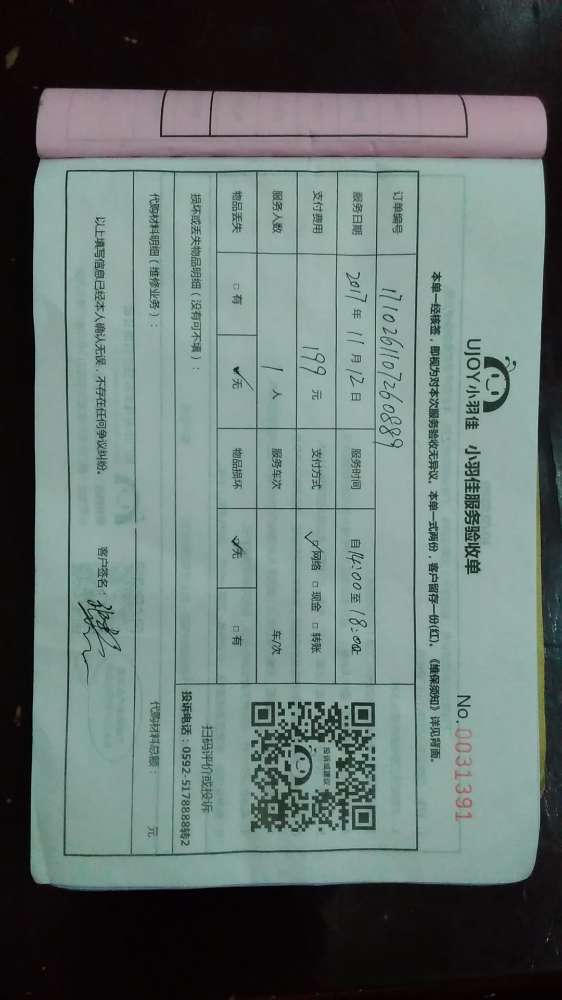 UJOY小羽佳 小羽佳服务验收单
No.0031391
本单一经核签，即视为对本次服务验收无异议。本单一式两份，客户留存一份(红)。《维保须知》详见背面。
订单编号 1710261107260889
服务日期 2017 年 11 月 12 日 服务时间 自 14:00 至 18:00
支付费用 199 元 支付方式 ☑网络 □现金 □转账
服务人数 1 人 服务车次 车/次
物品丢失 □有 ☑无 物品损坏 ☑无 □有
损坏或丢失物品明细（没有可不填）：
代购材料明细（维修业务）：
代购材料总额： 元
投诉或建议
扫码评价或投诉
投诉电话：0592-5178888转2
以上填写信息已经本人确认无误，不存在任何争议纠纷。
客户签名：